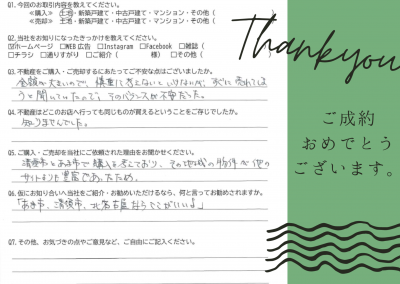 Q1. 今回のお取引内容を教えてください。
≪購入≫ 土地・新築戸建て・中古戸建て・マンション・その他（
≪売却≫ 土地・新築戸建て・中古戸建て・マンション・その他（
Q2. 当社をお知りになったきっかけを教えてください。
☑ホームページ □WEB広告 □Instagram □Facebook □雑誌（
□チラシ □通りすがり □ご紹介（ 様） □その他（
Q3. 不動産をご購入・ご売却するにあたって不安な点はございましたか。
金額が大きいので、慎重に考えないといけないが、すぐに売れてしま
うと聞いていたので、そのバランスが不安だった。
Q4. 不動産はどこのお店へ行っても同じものが買えるということをご存じでしたか。
知りませんでした。
Q5. ご購入・ご売却を当社にご依頼された理由をお聞かせください。
清須市とあま市で購入を考えており、その地域の物件が他の
サイトよりも豊富であったため。
Q6. 仮にお知り合いへ当社をご紹介・お勧めいただけるなら、何と言ってお勧めされますか。
「あま市、清須市、北名古屋ならここがいいよ」
Q7. その他、お気づきの点やご意見など、ご自由にご記入ください。
Thankyou
ご成約
おめでとう
ございます。